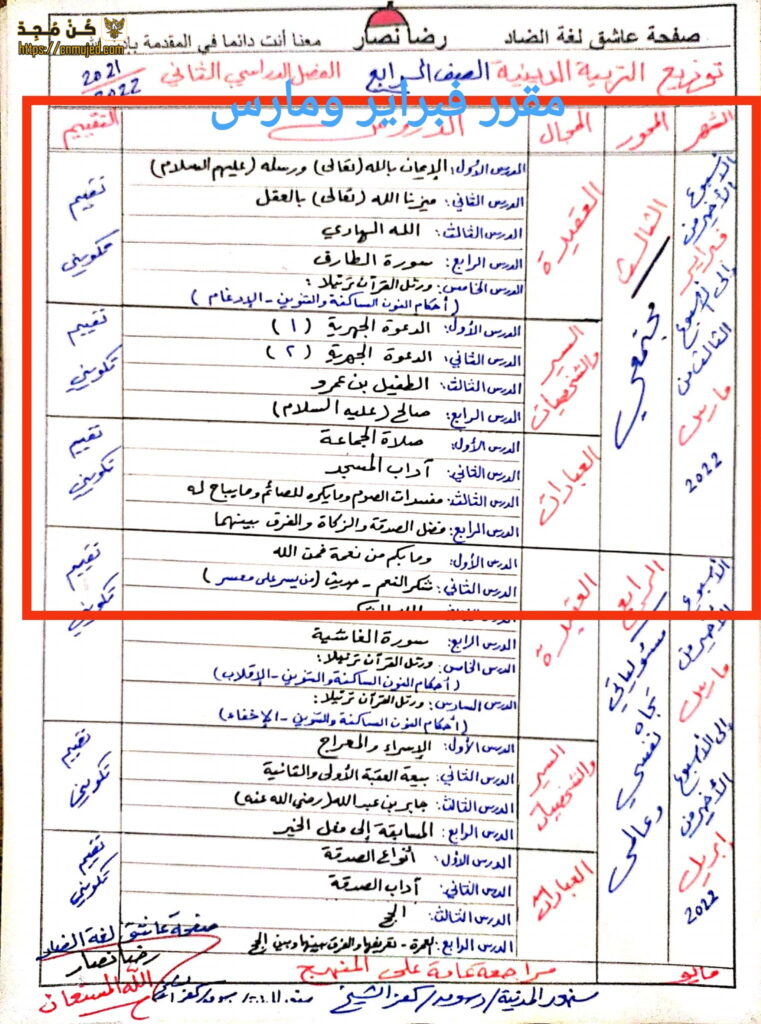 كُن مُجدّ
https://conmujed.com
صفحة عاشق لغة الضاد رضا نصار معنا أنت دائما في المقدمة
توزيع التربية الدينية الصف الرابع الفصل الدراسي الثاني 2021 / 2022
مقرر فبراير ومارس
الشهر المحور المجال الدروس التقييم
الأسبوع الأخير من فبراير إلى الأسبوع الثالث من مارس 2022
الثالث
مجتمعي
العقيدة
الدرس الأول: الإيمان بالله (تعالى) ورسله (عليهم السلام)
الدرس الثاني: ميزنا الله (تعالى) بالعقل
الدرس الثالث: الله الهادي
الدرس الرابع: سورة الطارق
الدرس الخامس: ورتل القرآن ترتيلا:
(أحكام النون الساكنة والتنوين - الإدغام)
تقييم تكويني
السير والشخصيات
الدرس الأول: الدعوة الجهرية (١)
الدرس الثاني: الدعوة الجهرية (٢)
الدرس الثالث: الطفيل بن عمرو
الدرس الرابع: صالح (عليه السلام)
تقييم تكويني
العبادات
الدرس الأول: صلاة الجماعة
الدرس الثاني: آداب المسجد
الدرس الثالث: مفسدات الصوم وما يكره للصائم وما يباح له
الدرس الرابع: فضل الصدقة والزكاة والفرق بينهما
تقييم تكويني
الأسبوع الأخير من مارس إلى الأسبوع الأخير من إبريل 2022
الرابع
مسئولياتي تجاه نفسي وعالمي
العقيدة
الدرس الأول: وما بكم من نعمة فمن الله
الدرس الثاني: شكر النعم - حديث (من يسر على معسر)
الدرس الرابع: سورة الغاشية
الدرس الخامس: ورتل القرآن ترتيلا:
(أحكام النون الساكنة والتنوين - الإقلاب)
الدرس السادس: ورتل القرآن ترتيلا:
(أحكام النون الساكنة والتنوين - الإخفاء)
تقييم تكويني
السير والشخصيات
الدرس الأول: الإسراء والمعراج
الدرس الثاني: بيعة العقبة الأولى والثانية
الدرس الثالث: جابر بن عبد الله (رضي الله عنه)
الدرس الرابع: المسابقة إلى فعل الخير
تقييم تكويني
العبادات
الدرس الأول: أنواع الصدقة
الدرس الثاني: آداب الصدقة
الدرس الثالث: الحج
الدرس الرابع: العمرة - تعريفها والفرق بينها وبين الحج
تقييم تكويني
مايو مراجعة عامة على المنهج
صفحة عاشق لغة الضاد
رضا نصار
الله المستعان
سنهور المدينة / دسوق / كفر الشيخ